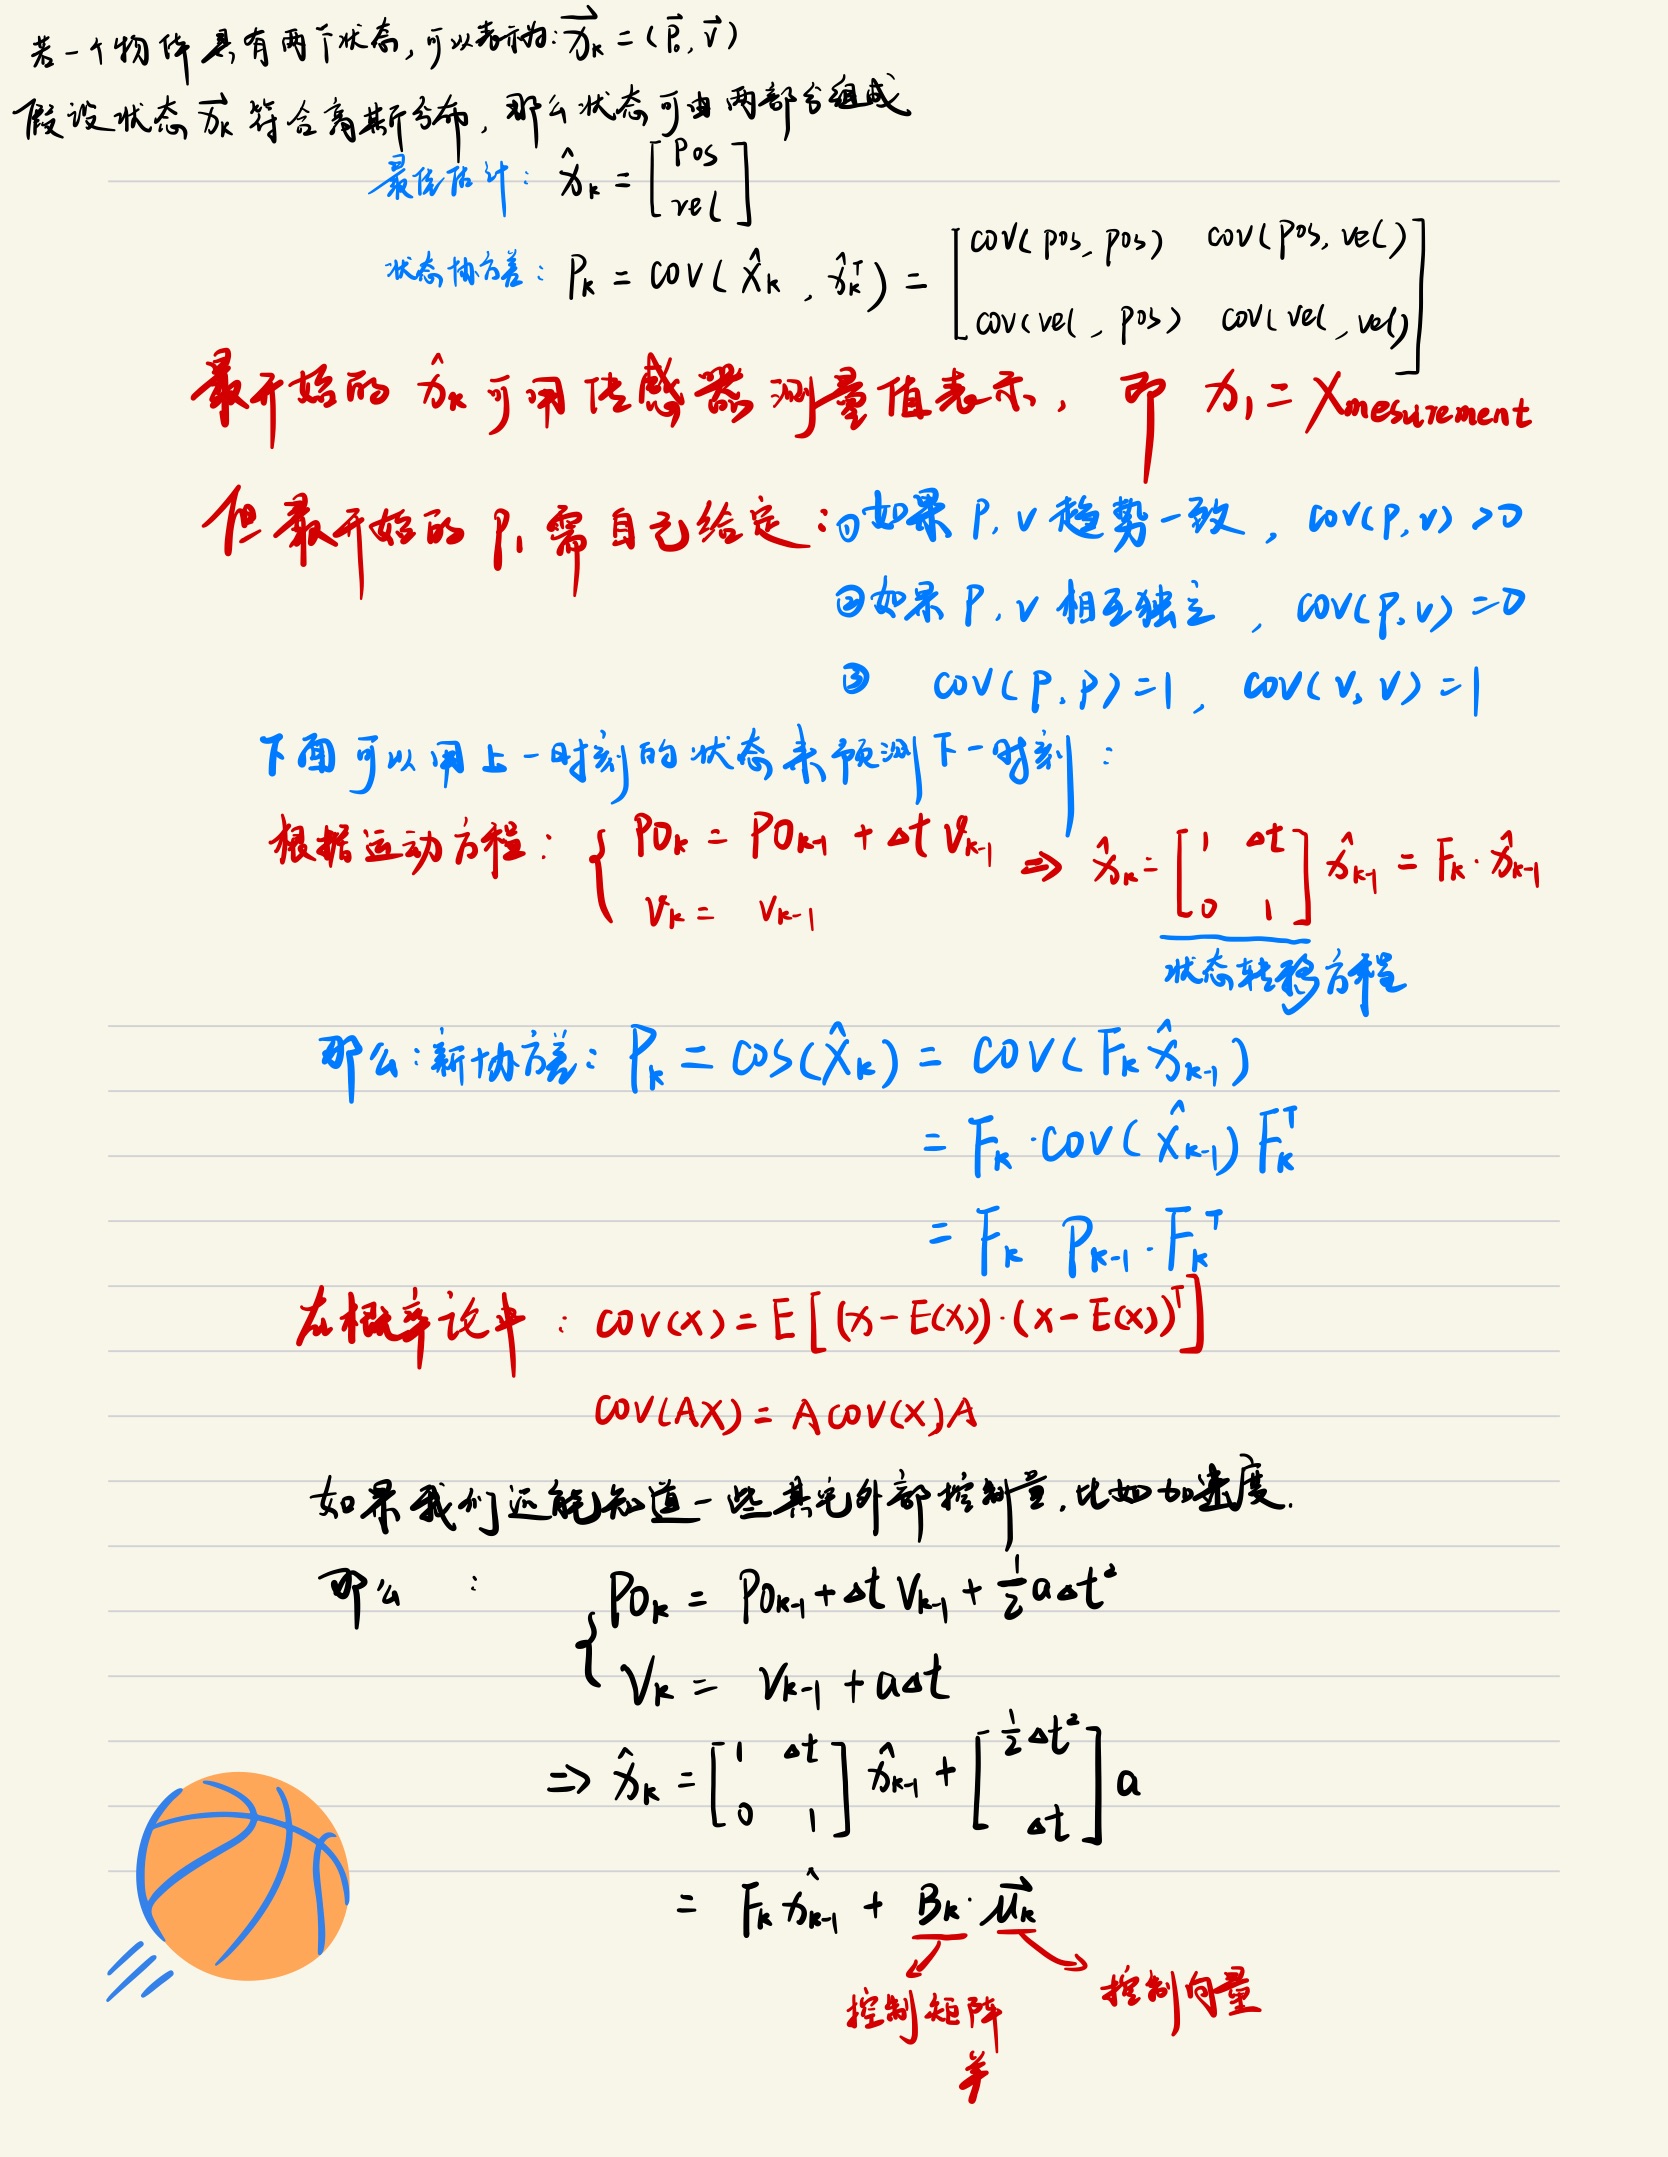 若一个物体具有两个状态,可以表示为: $\vec{x}_k = (\vec{p}, \vec{v})$
假设状态 $\vec{x}_k$ 符合高斯分布, 那么状态可由两部分组成
最佳估计: $\hat{x}_k = \begin{bmatrix} pos \\ vel \end{bmatrix}$
状态协方差: $P_k = cov(\hat{x}_k, \hat{x}_k^T) = \begin{bmatrix} cov(pos, pos) & cov(pos, vel) \\ cov(vel, pos) & cov(vel, vel) \end{bmatrix}$
最开始的 $\hat{x}_k$ 可用传感器测量值表示, 即 $x_1 = X_{mesurement}$
但最开始的 $P_1$ 需自己给定: ①如果 P, v 趋势一致, cov(P, v) >0
②如果 P, v 相互独立, cov(P, v) =0
③ cov(P, P) =1, cov(v, v) =1
下面可以用上一时刻的状态来预测下一时刻:
根据运动方程: $\begin{cases} PO_k = PO_{k-1} + \Delta t\, v_{k-1} \\ v_k = v_{k-1} \end{cases} \Rightarrow \hat{x}_k = \begin{bmatrix} 1 & \Delta t \\ 0 & 1 \end{bmatrix} \hat{x}_{k-1} = F_k \cdot \hat{x}_{k-1}$
状态转移方程
那么: 新协方差: $P_k = cos(\hat{x}_k) = cov(F_k \hat{x}_{k-1})$
$= F_k \cdot cov(\hat{x}_{k-1}) F_k^T$
$= F_k \; P_{k-1} \cdot F_k^T$
在概率论中: $cov(x) = E[(x - E(x)) \cdot (x - E(x))^T]$
$cov(AX) = A\,cov(x)A$
如果我们还能知道一些其它外部控制量, 比如加速度.
那么: $\begin{cases} PO_k = PO_{k-1} + \Delta t\, v_{k-1} + \frac{1}{2} a \Delta t^2 \\ v_k = v_{k-1} + a \Delta t \end{cases}$
$\Rightarrow \hat{x}_k = \begin{bmatrix} 1 & \Delta t \\ 0 & 1 \end{bmatrix} \hat{x}_{k-1} + \begin{bmatrix} \frac{1}{2} \Delta t^2 \\ \Delta t \end{bmatrix} a$
$= F_k \hat{x}_{k-1} + B_k \cdot \vec{u}_k$
控制矩阵 控制向量